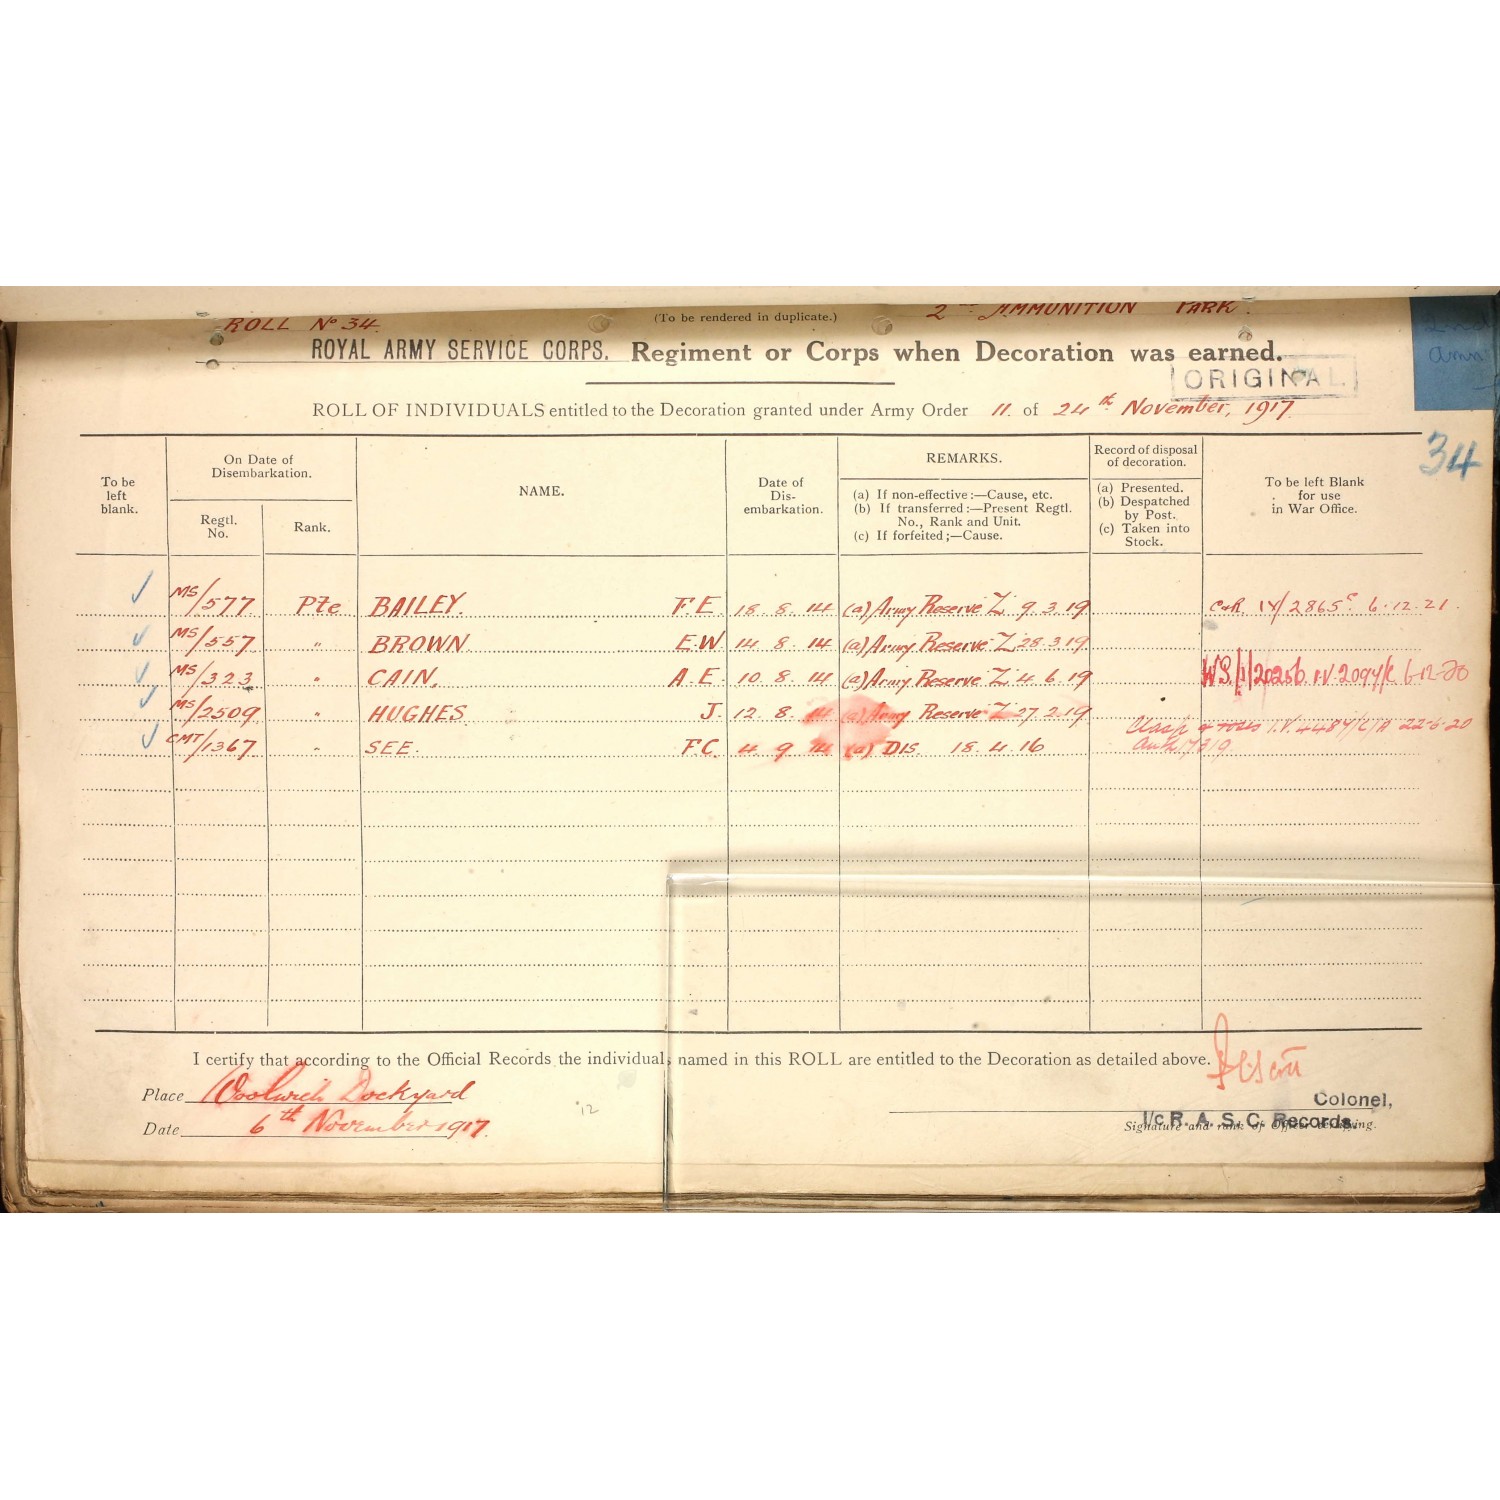 ROLL No 34.
(To be rendered in duplicate.)
2nd AMMUNITION PARK.
ROYAL ARMY SERVICE CORPS. Regiment or Corps when Decoration was earned.
ORIGINAL.
2nd
amn
ROLL OF INDIVIDUALS entitled to the Decoration granted under Army Order 11. of 24th November, 1917.
34
To be left blank.
On Date of Disembarkation.
Regtl. No.
Rank.
NAME.
Date of Dis-embarkation.
REMARKS.
(a) If non-effective :—Cause, etc.
(b) If transferred :—Present Regtl. No., Rank and Unit.
(c) If forfeited ;—Cause.
Record of disposal of decoration.
(a) Presented.
(b) Despatched by Post.
(c) Taken into Stock.
To be left Blank for use in War Office.
MS/577 Pte BAILEY. F.E. 18. 8. 14 (a) Army Reserve Z 9.3.19 IV/2865 6.12.21.
MS/557 " BROWN E.W. 14. 8. 14 (a) Army Reserve Z 28.3.19
MS/323 " CAIN, A.E. 10. 8. 14 (a) Army Reserve Z 4.6.19 6-12-20
MS/2509 " HUGHES J. 12. 8. 14 (a) Army Reserve Z 27.2.19
Clasp & roses I.V. 4484/C/A 22-6-20
CMT/1367 " SEE. F.C. 4 9 14 (a) DIS. 18.4.16
I certify that according to the Official Records the individuals named in this ROLL are entitled to the Decoration as detailed above.
Place Woolwich Dockyard
Date 6th November 1917.
12
Colonel,
I/c R. A. S. C. Records.
Signature and rank of Officer certifying.